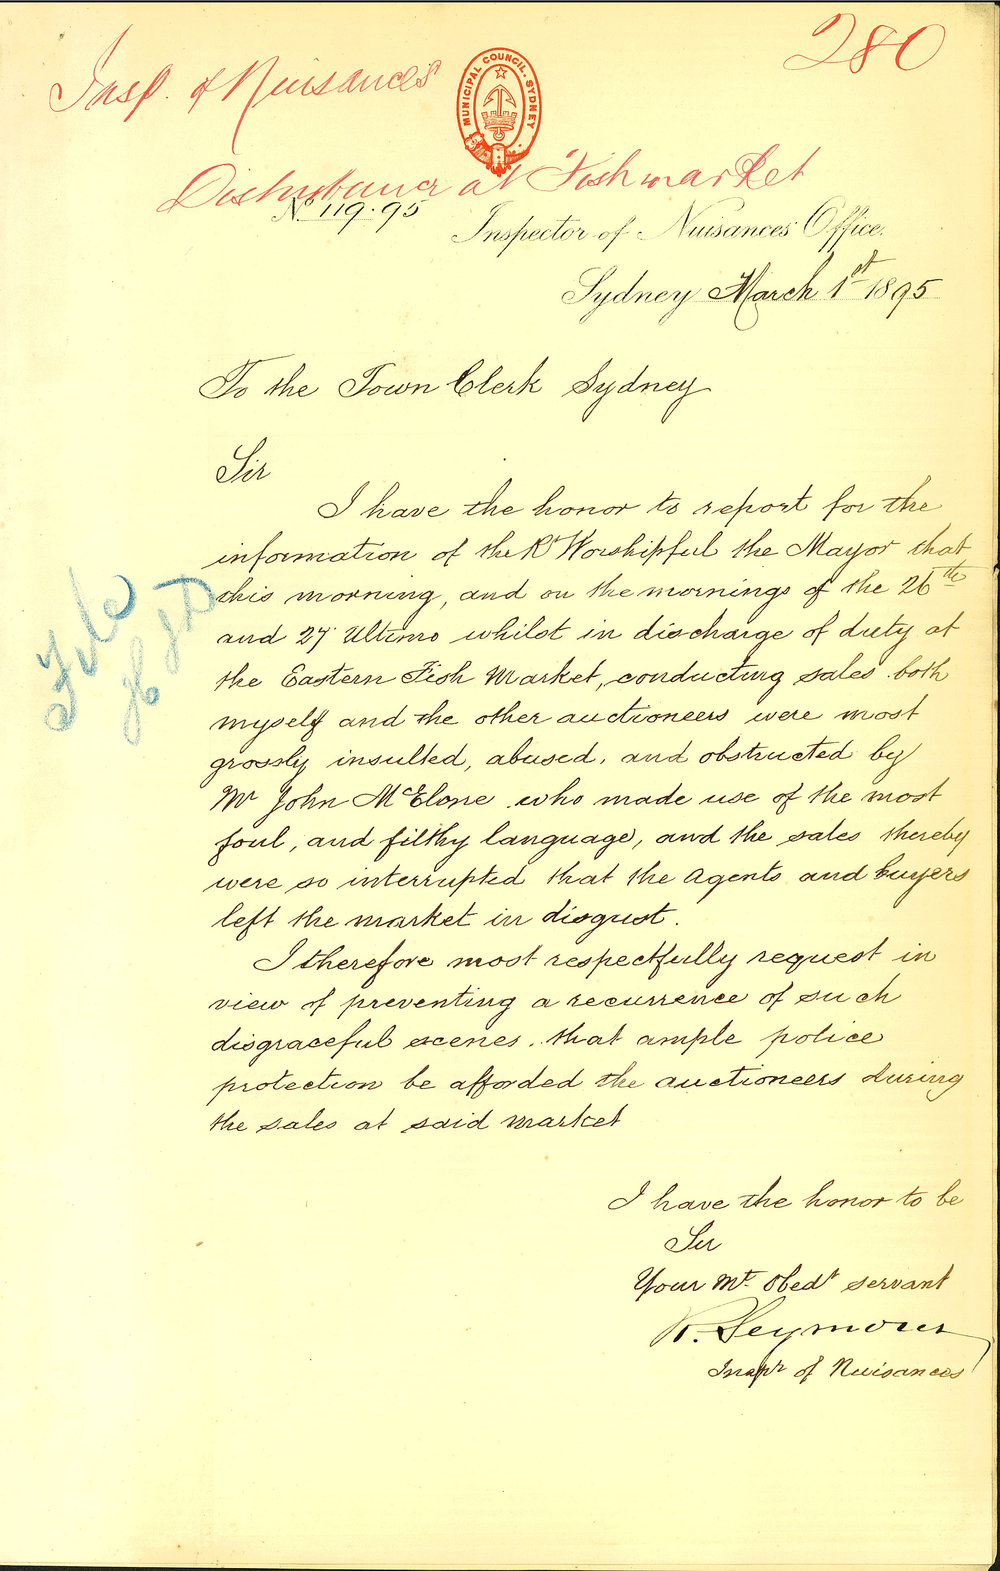 280
Insp. of Nuisances
MUNICIPAL COUNCIL. SYDNEY
Disturbance at Fishmarket
No. 119.95
Inspector of Nuisances Office.
Sydney March 1st 1895
To the Town Clerk Sydney
Sir
I have the honor to report for the
information of the Rt Worshipful the Mayor that
this morning, and on the mornings of the 26th
and 27 Ultimo whilst in discharge of duty at
the Eastern Fish Market, conducting sales. both
myself and the other auctioneers were most
grossly insulted, abused, and obstructed by
Mr John McElone who made use of the most
foul, and filthy language, and the sales thereby
were so interrupted that the Agents and buyers
left the market in disgust.
I therefore most respectfully request in
view of preventing a recurrence of such
disgraceful scenes. that ample police
protection be afforded the auctioneers during
the sales at said market
I have the honor to be
Sir
Your Mt. Obedt servant
R. Seymour
Inspr of Nuisances
File